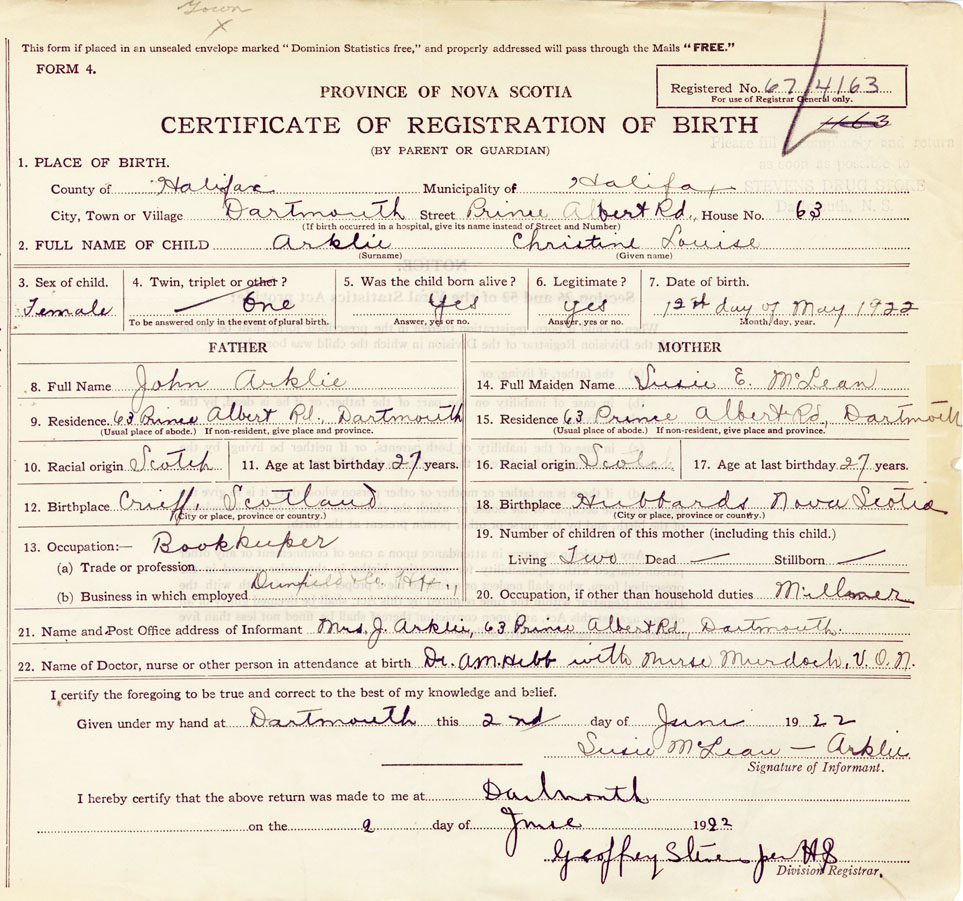 Town
X
This form if placed in an unsealed envelope marked "Dominion Statistics free," and properly addressed will pass through the Mails "FREE."
FORM 4.
Registered No. 67/4163
For use of Registrar General only.
PROVINCE OF NOVA SCOTIA
CERTIFICATE OF REGISTRATION OF BIRTH
1163
(BY PARENT OR GUARDIAN)
1. PLACE OF BIRTH.
County of Halifax Municipality of Halifax
City, Town or Village Dartmouth Street Prince Albert Rd. House No. 63
(If birth occurred in a hospital, give its name instead of Street and Number)
2. FULL NAME OF CHILD Arklie Christine Louise
(Surname) (Given name)
3. Sex of child. 4. Twin, triplet or other? 5. Was the child born alive? 6. Legitimate? 7. Date of birth.
Female One Yes yes 12th day of May 1922
To be answered only in the event of plural birth. Answer, yes or no. Answer, yes or no. Month, day, year.
FATHER MOTHER
8. Full Name John Arklie
14. Full Maiden Name Susie E. McLean
9. Residence. 63 Prince Albert Rd. Dartmouth
15. Residence 63 Prince Albert Rd, Dartmouth
(Usual place of abode.) If non-resident, give place and province.
(Usual place of abode.) If non-resident, give place and province.
10. Racial origin Scotch 11. Age at last birthday 27 years.
16. Racial origin 17. Age at last birthday 27 years.
12. Birthplace Crieff, Scotland
18. Birthplace Hubbards Nova Scotia
(City or place, province or country.)
(City or place, province or country.)
13. Occupation:— Bookkeeper
19. Number of children of this mother (including this child.)
(a) Trade or profession
Living Two Dead — Stillborn —
(b) Business in which employed
20. Occupation, if other than household duties Milliner
21. Name and Post Office address of Informant Mrs. J. Arklie, 63 Prince Albert Rd, Dartmouth.
22. Name of Doctor, nurse or other person in attendance at birth Dr. A.M. Hebb with nurse Murdoch, V.O.N.
I certify the foregoing to be true and correct to the best of my knowledge and belief.
Given under my hand at Dartmouth this 2nd day of June 1922
Susie McLean — Arklie
Signature of Informant.
I hereby certify that the above return was made to me at Dartmouth
on the 2 day of June 1922
Geoffrey Stevens per HS
Division Registrar.